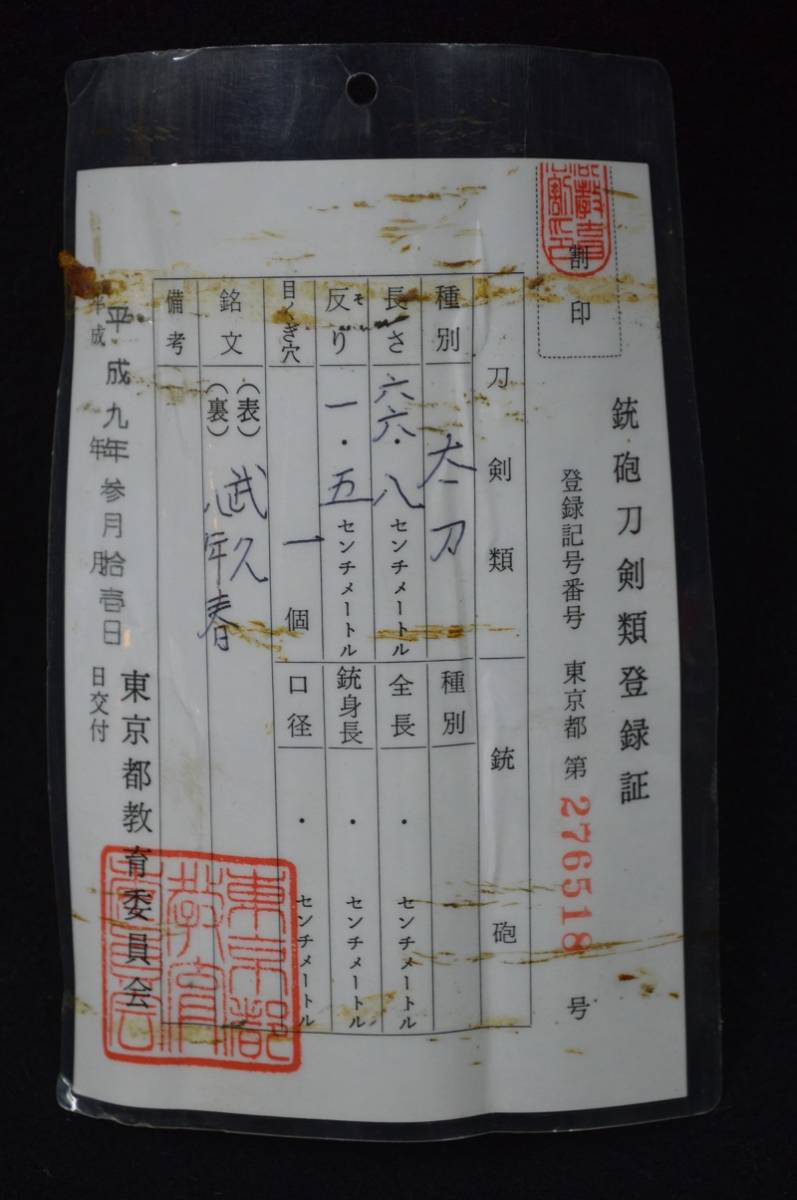 割印
銃砲刀剣類登録証
登録記号番号 東京都 第 276518 号
刀剣類
種別 太刀
長さ 六六.八 センチメートル
反り そ 一.五 センチメートル
目くぎ穴 一 個
銘文 (表) 武久
(裏) 八年春
備考
銃砲
種別
全長 ・ センチメートル
銃身長 ・ センチメートル
口径 ・ センチメートル
平成九年参月拾壱日
平成 年 月 日交付
東京都教育委員会
東京都教育委員会